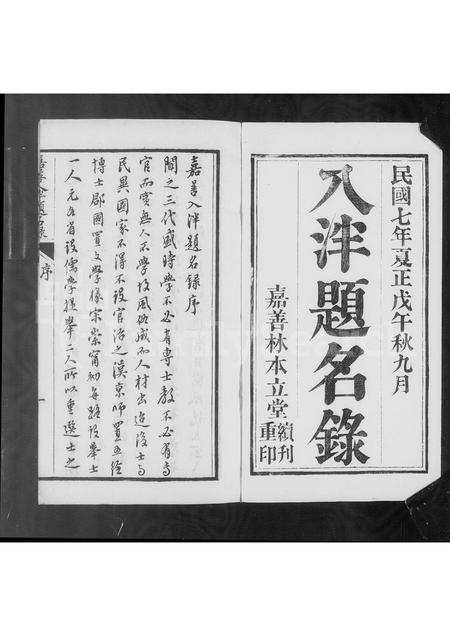 民國七年夏正戊午秋九月
入泮題名錄
嘉善林本立堂續刊重印
嘉善入泮題名錄序
聞之三代盛時學不必有專士教不必有專
官而實無人不學故風俗成而人材出迨後士與
民異國家不得不設官治之漢京師置五經
博士郡國置文學掾宋崇甯初每路設舉士
一人元各省設儒學提舉二人所以重選士之
序
一